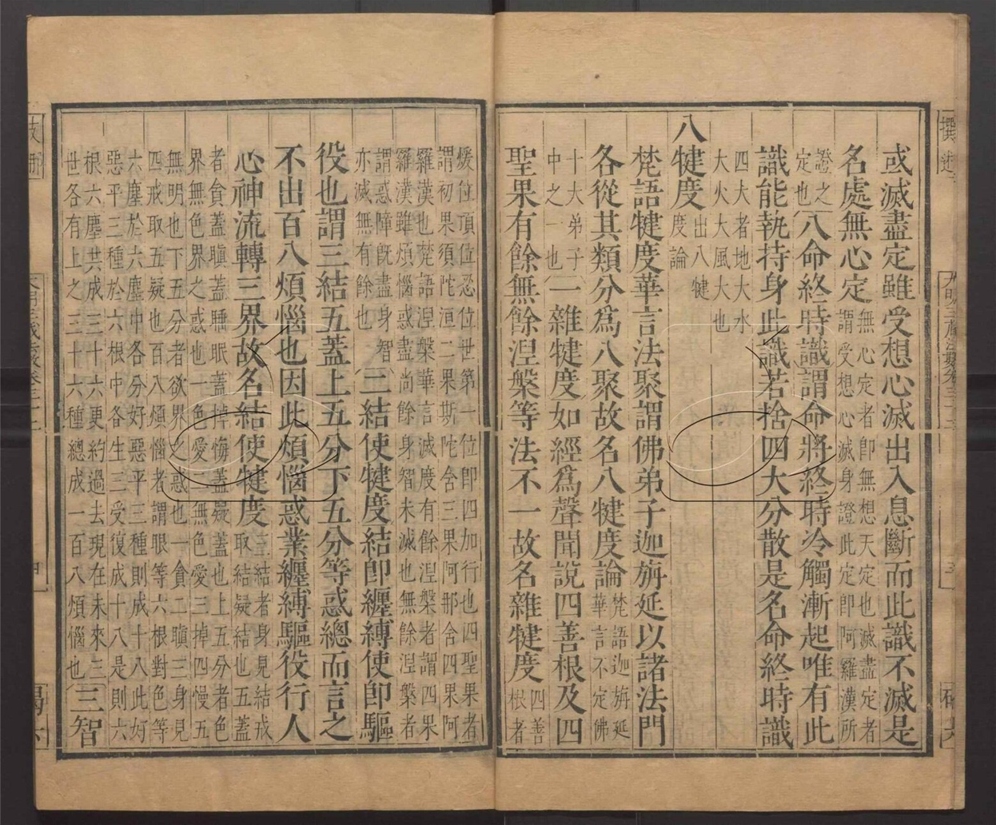 或滅盡定雖受想心滅出入息斷而此識不滅是
名處無心定
無心定者即無想天定也滅盡定者
謂受想心滅身證此定即阿羅漢所
證之
定也
八命終時識謂命將終時冷觸漸起唯有此
識能執持身此識若捨四大分散是名命終時識
四大者地大水
大火大風大也
八犍度
出八犍
度論
梵語犍度華言法聚謂佛弟子迦旃延以諸法門
各從其類分爲八聚故名八犍度論
梵語迦旃延
華言不定佛
十大弟子
中之一也
一雜犍度如經爲聲聞說四善根及四
聖果有餘無餘涅槃等法不一故名雜犍度
四善
根者
煖位頂位忍位世第一位即四加行也四聖果者
謂初果須陀洹二果斯陀含三果阿那含四果阿
羅漢也梵語涅槃華言滅度有餘涅槃者謂四果
羅漢雖煩惱惑盡尚餘身智未滅也無餘涅槃者
謂惑障既盡身智
亦滅無有餘也
二結使犍度結即纏縛使即驅
役也謂三結五蓋上五分下五分等惑總而言之
不出百八煩惱也因此煩惱惑業纏縛驅役行人
心神流轉三界故名結使犍度
三結者身見結戒
取結疑結也五蓋
者貪蓋瞋蓋睡眠蓋掉悔蓋疑蓋也上五分者色
界無色界之惑也一色愛二無色愛三掉四慢五
無明也下五分者欲界之惑也一貪二瞋三身見
四戒取五疑也百八煩惱者謂眼等六根對色等
六塵於六塵中各分好惡平三種則成十八此好
惡平三種於六根中各生三受復成十八是則六
根六塵共成三十六更約過去現在未來三
世各有上之三十六種總成一百八煩惱也
三智